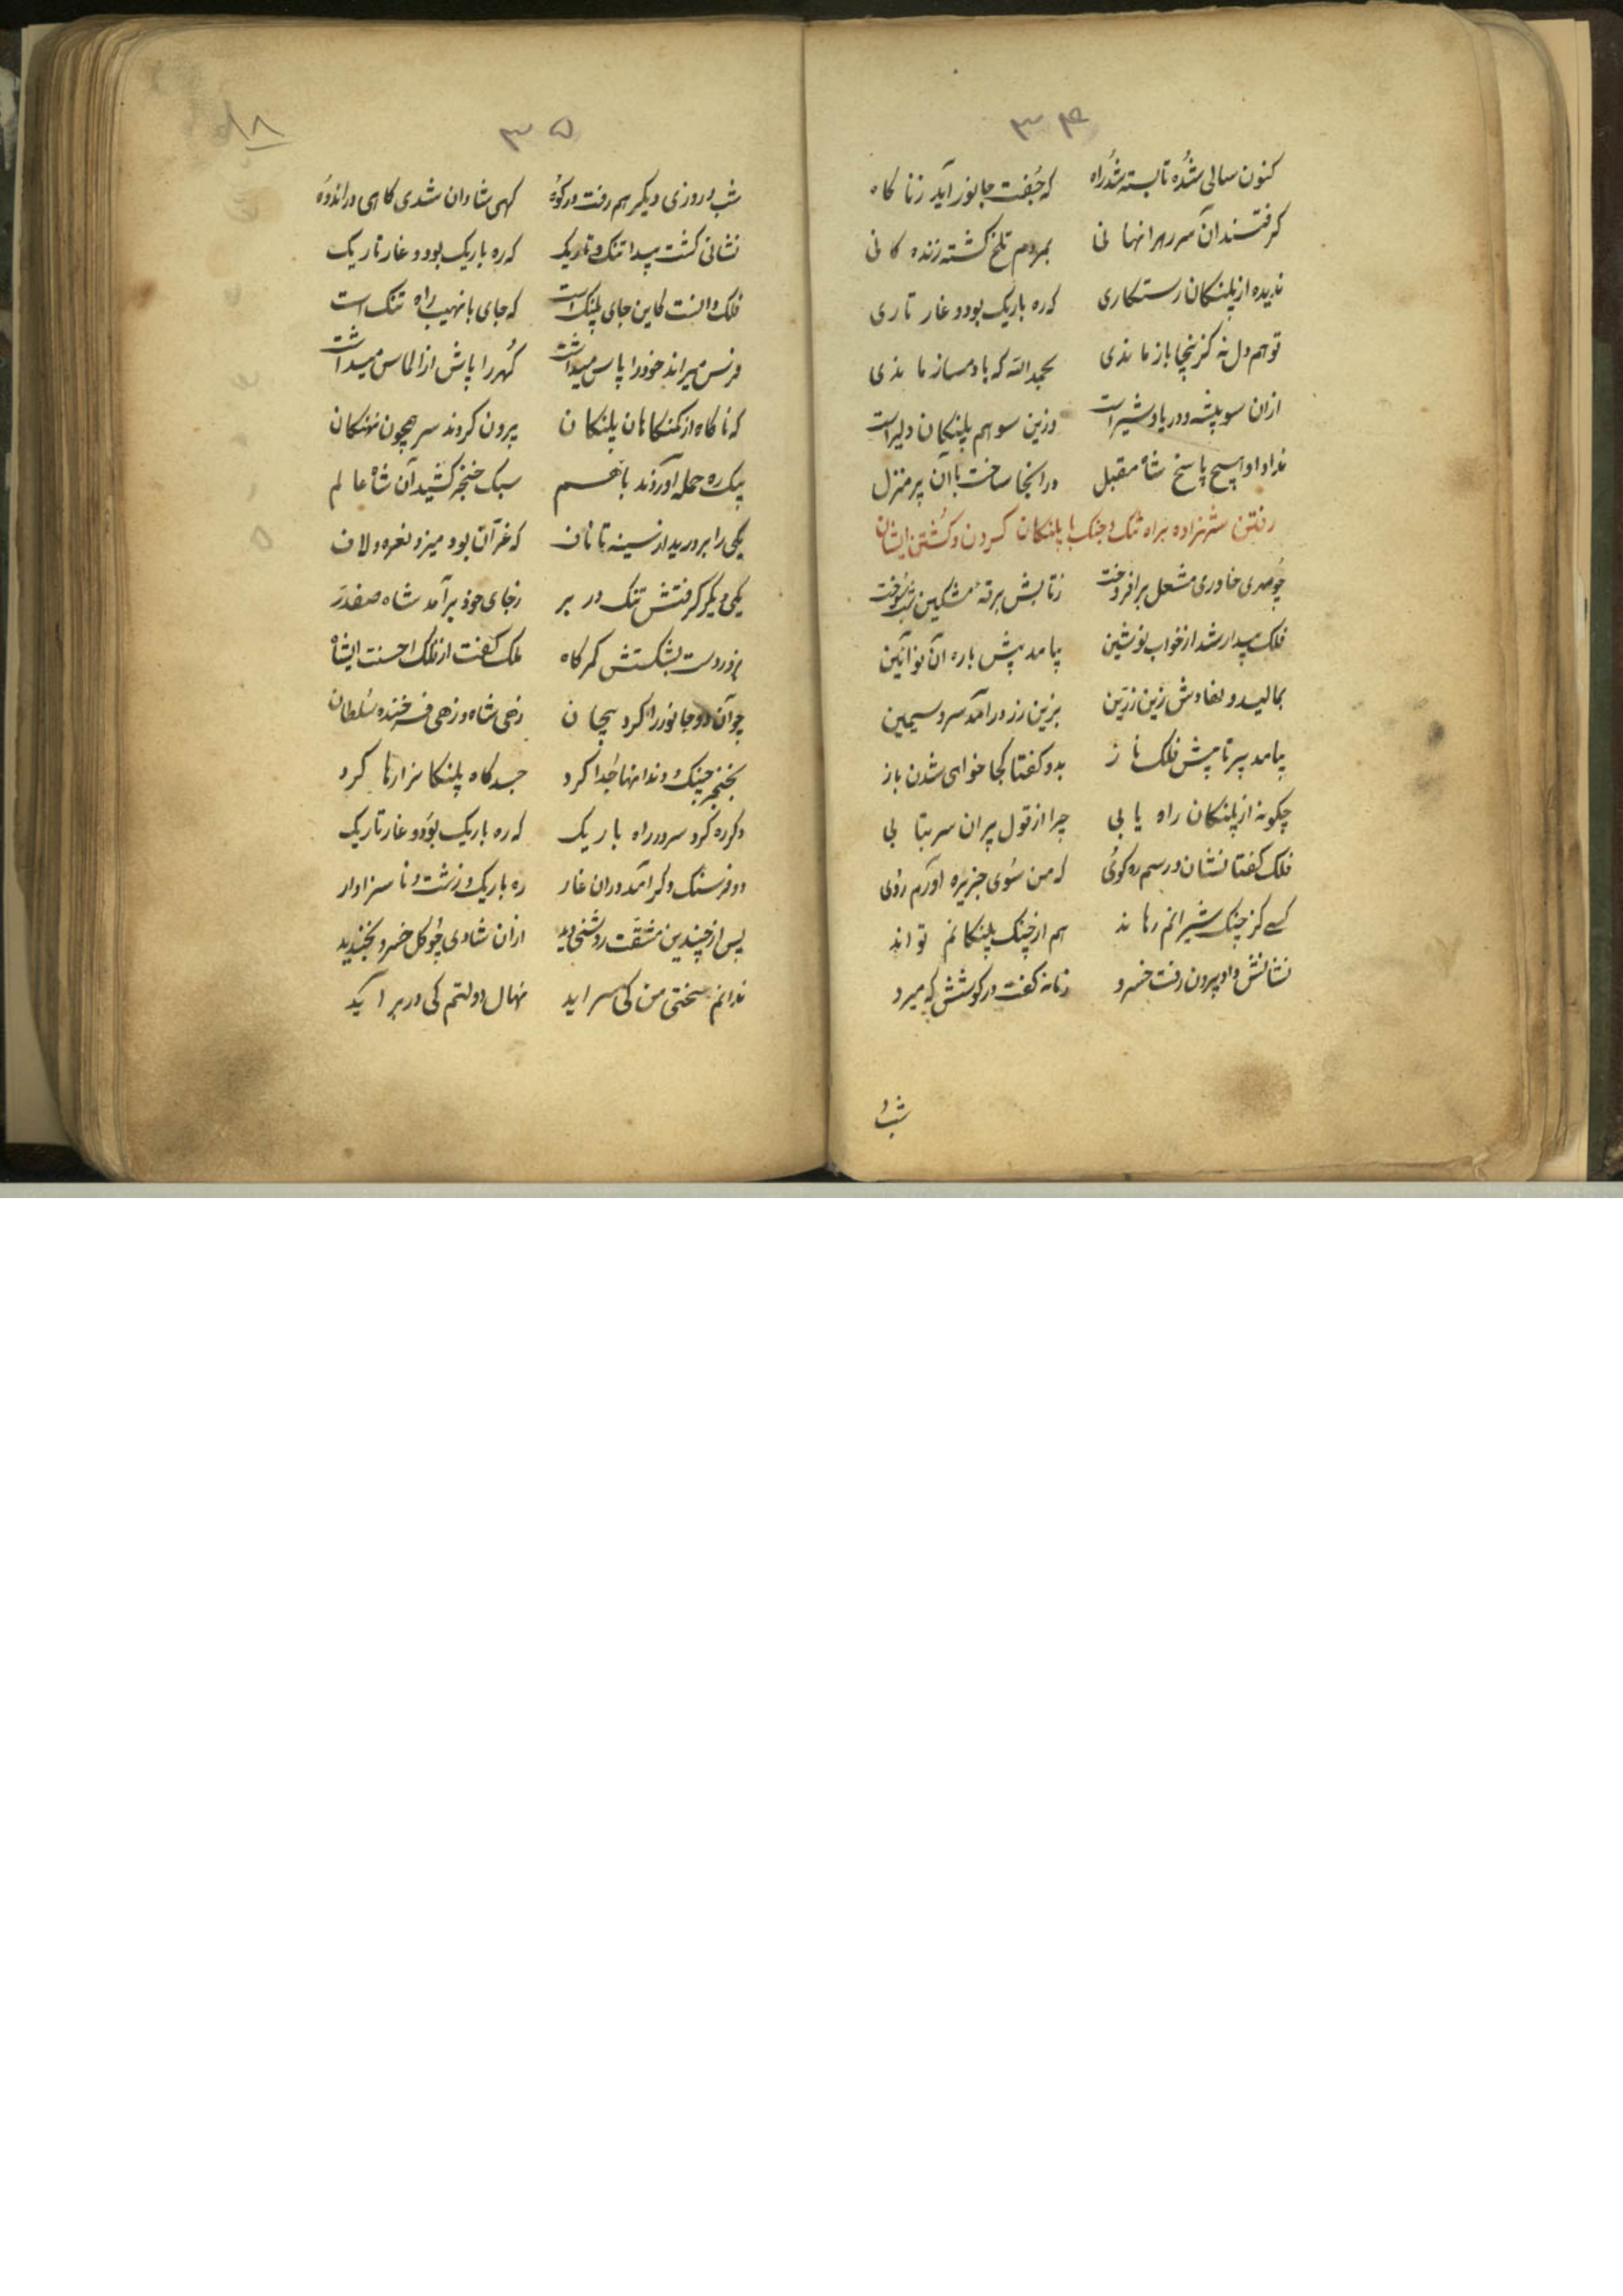 ۳۴
کنون سالی شده تا بسته شد راه که جفت جانور آید زناکاه
کرفتند آن سر ره را نهانی بمردم تلخ کشته زنده کانی
ندیده از پلنکان رستکاری که ره باریک بود و غار تاری
تو هم دل نه کزینجا باز ماندی بحمدالله که با دمساز ماندی
ازان سو بیشه و دریا و شیراست وزین سو هم پلنکان دلیراست
نداد او هیچ پاسخ شاه مقبل در انجا ساخت با آن پیر منزل
رفتن شهزاده براه تنک و جنک با پلنکان کردن و کشتن ایشان
چو مهدی خاوری مشعل برافروخت زتابش برقه مشکین شب سوخت
فلک بیدار شد از خواب نوشین بیامد پیش باره آن نو آئین
بمالید و نهادش زین زرین بزین زر درآمد سرو سیمین
بیامد پیر تا پیش فلک ناز بدو کفتا کجا خواهی شدن باز
چکونه از پلنکان راه یابی چرا از قول پیران سر بتابی
فلک کفتا نشان و رسم ره کوئی که من سوی جزیره اورم روی
کسے کز چنک شیرانم رهاند هم از چنک پلنکانم تواند
نشانش داد و بیرون رفت خسرو زمانه کفت در کوشش که میرو
شب و
۳۵
۱۸
شب و روزی دیکر هم رفت در کوه کهی شادان شدی کاهی در اندوه
نشانی کشت پیدا تنک و تاریک که ره باریک بود و غار تاریک
فلک دانست کاین جای پلنک است که جای با نهیب راه تنک است
فرس میراند خود را پاس میداشت کهر را پاش از الماس میداشت
که ناکاه از کمنکاهان پلنکان بیرون کردند سر همچون نهنکان
بیک ره حمله آوردند باهم سبک خنجر کشید آن شاه عالم
یکی را بر درید از سینه تا ناف که غرآن بود میزد نعره و لاف
یکی دیکر کرفتش تنک در بر زجای خود برآمد شاه صفدر
بزور دست بشکستش کمرکاه ملک کفت از فلک احسنت ایشاه
چو آن دو جانور را کرد بیجان زهی شاه و زهی فرخنده سلطان
بخنجر چنک و دندانها جدا کرد جسدکاه پلنکانرا رها کرد
دکر ره کرد سر در راه باریک که ره باریک بود و غار تاریک
دو فرسنک دکر آمد دران غار ره باریک و زشت و ناسزاوار
پس از چندین مشقت روشنی دید ازان شادی چو کل خسرو بخندید
ندانم سختی من کی سراید نهال دولتم کی در بر آید